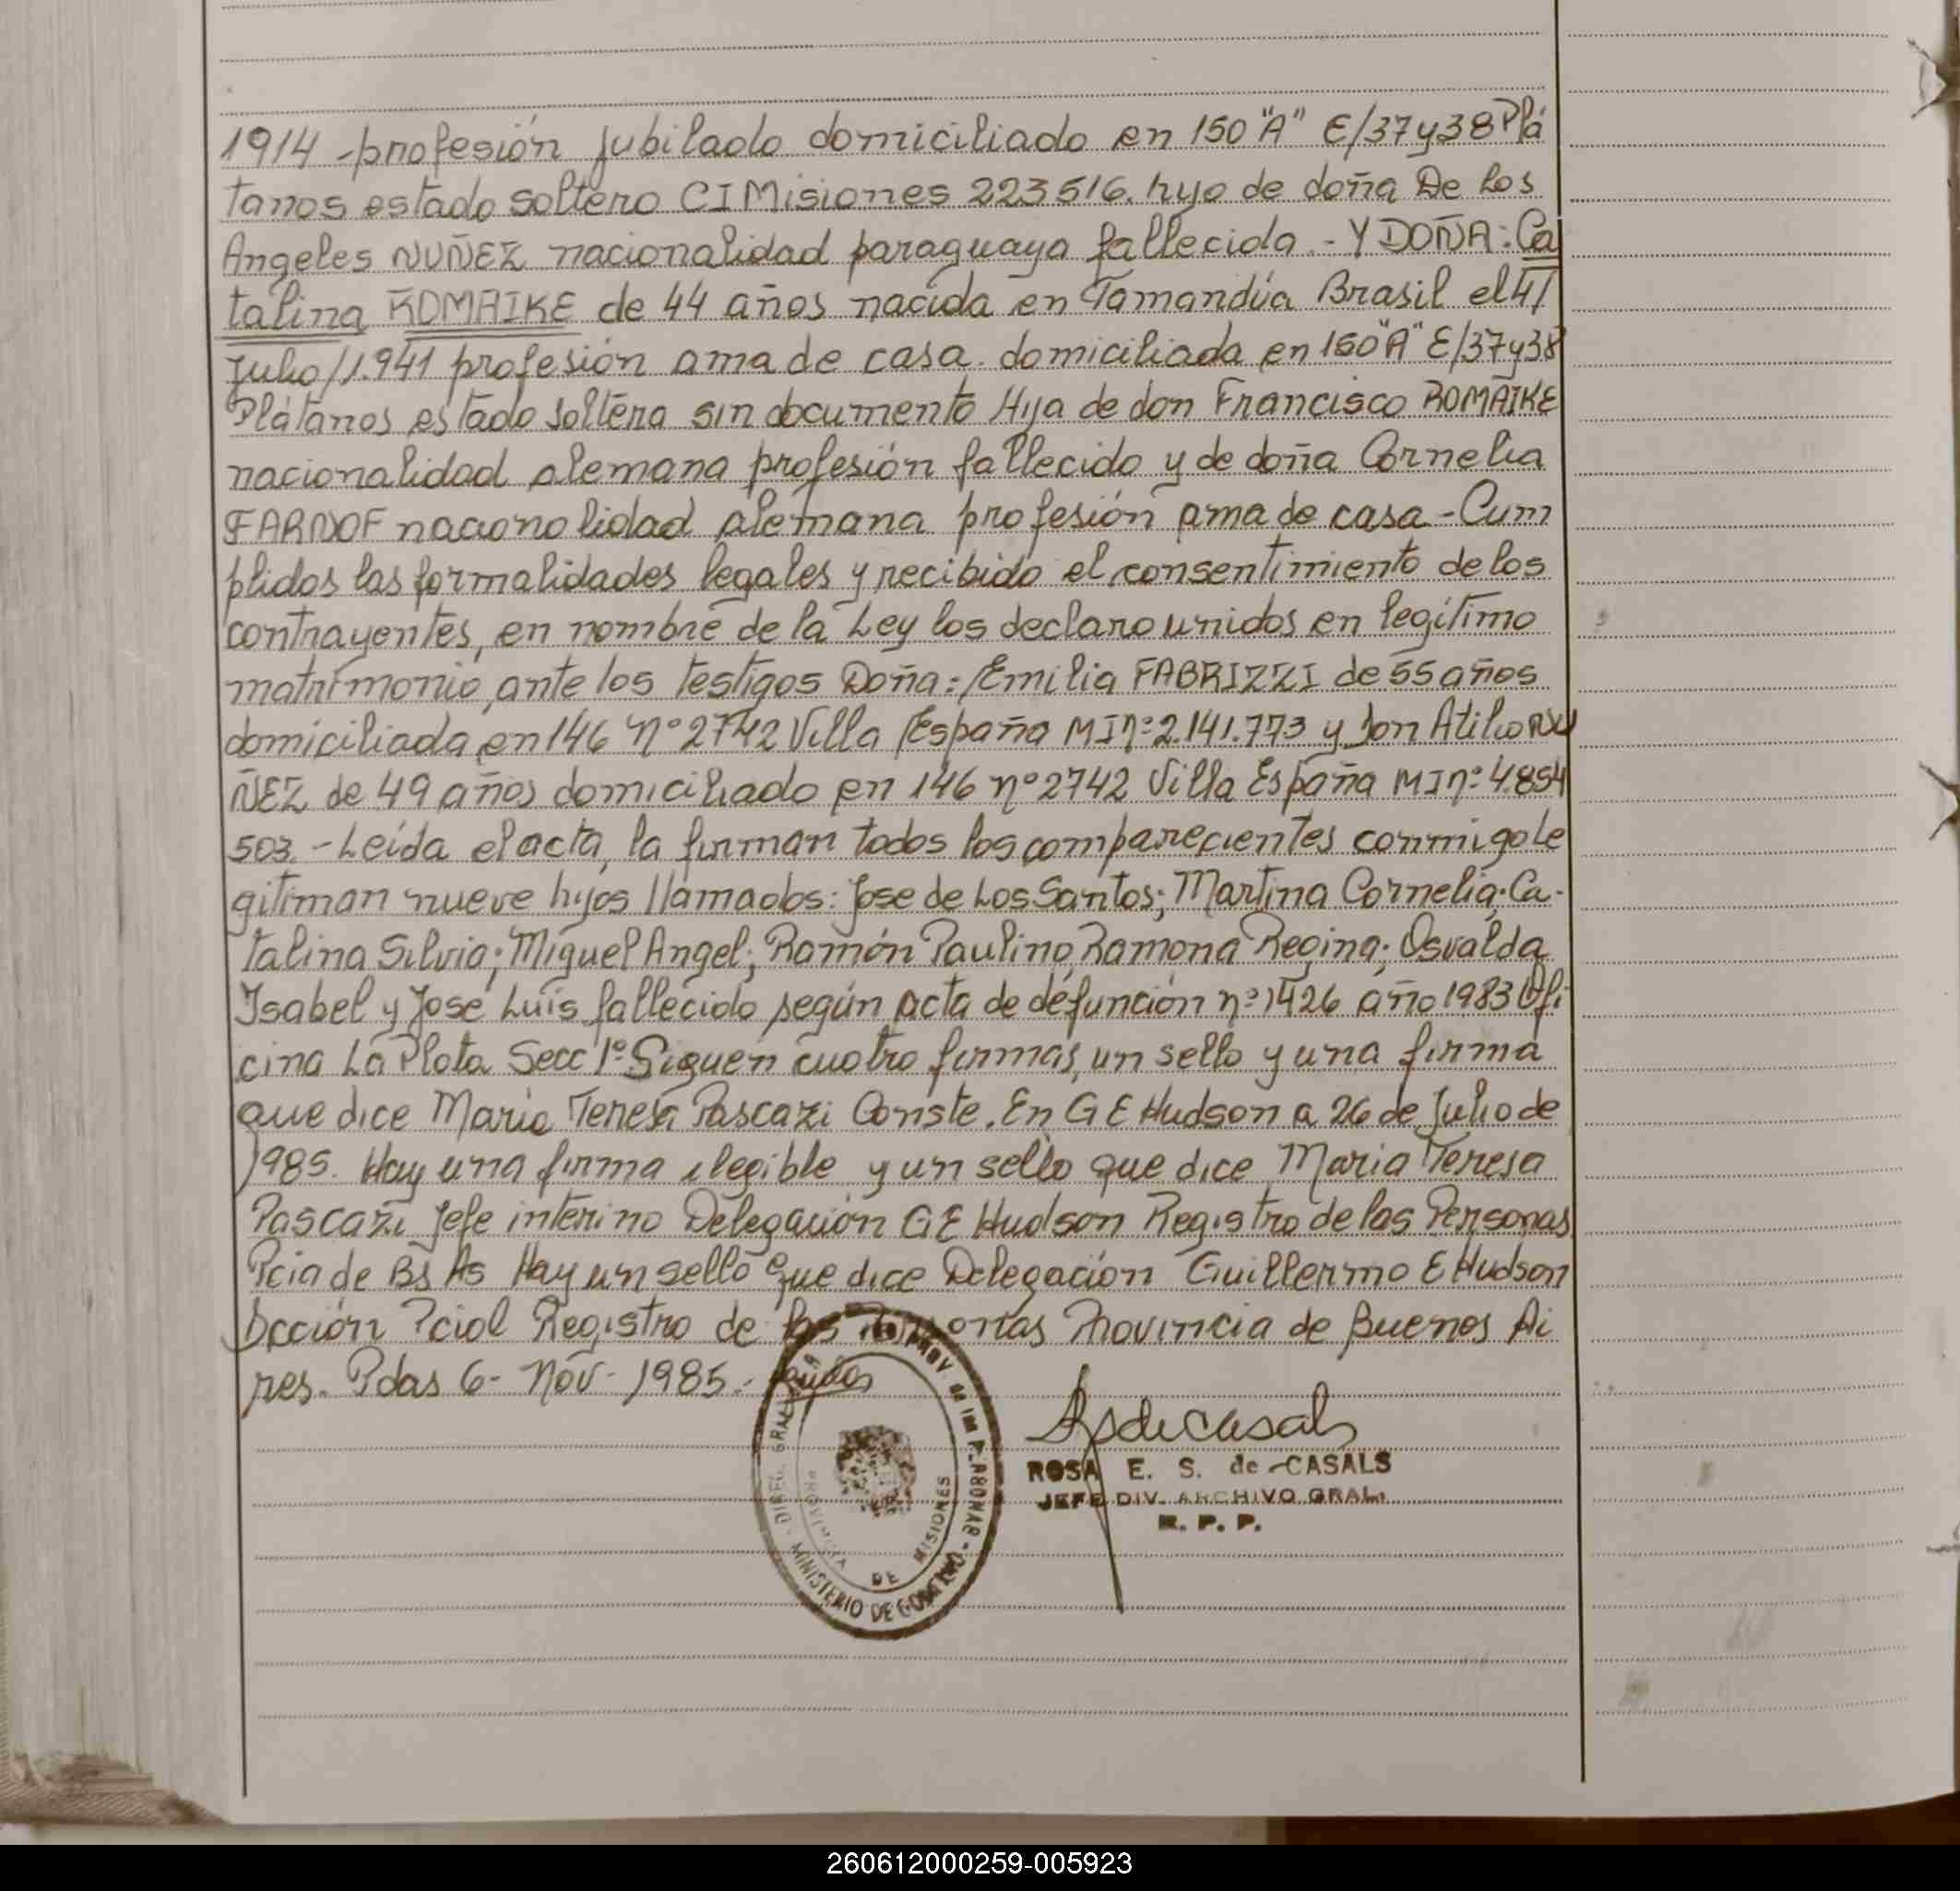 1914 -profesión jubilado domiciliado en 150 "A" E/37y38 Plá
tanos estado soltero CI Misiones 223516. hijo de doña De Los
Angeles NUÑEZ nacionalidad paraguaya fallecida.- Y DOÑA: Ca
talina ROMAIKE de 44 años nacida en Tamandúa Brasil el 4/
Julio/1.941 profesión ama de casa. domiciliada en 150 "A" E/37y38
Plátanos estado soltera sin documento Hija de don Francisco ROMAIKE
nacionalidad alemana profesión fallecido y de doña Cornelia
FARNOF nacionalidad alemana profesión ama de casa - Cum
plidos las formalidades legales y recibido el consentimiento de los
contrayentes, en nombre de la Ley los declaro unidos en legítimo
matrimonio, ante los testigos Doña: Emilia FABRIZZI de 55 años
domiciliada en 146 nº 2742 Villa España MI nº: 2.141.773 y Don Atilio NU
ÑEZ de 49 años domiciliado en 146 nº 2742 Villa España MI nº: 4.854
503.- Leída el acta, la firman todos los comparecientes conmigo Le
gitiman nueve hijos llamados: Jose de Los Santos; Martina Cornelia; Ca-
talina Silvia; Miguel Angel; Ramón Paulino, Ramona Regina; Osvalda
Isabel y José Luis fallecido según acta de defunción nº: 1426 año 1983 Ofi
cina La Plata Secc 1º. Siguen cuatro firmas, un sello y una firma
que dice Maria Teresa Pascazi Conste. En G E Hudson a 26 de Julio de
1985. Hay una firma ilegible y un sello que dice Maria Teresa
Pascazi Jefe interino Delegación G E Hudson Registro de las Personas
Pcia de Bs As Hay un sello que dice Delegación Guillermo E Hudson
Dcción Pcial Registro de las Personas Provincia de Buenos Ai
res. Pdas 6- Nov- 1985.-
ROSA E. S. de CASALS
JEFE DIV. ARCHIVO GRAL.
R. P. P.
PROV. de las PERSONAS
MINISTERIO DE GOBIERNO
PROVINCIA DE MISIONES
260612000259-005923